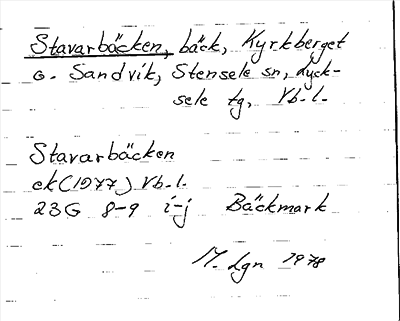 Stavarbäcken, bäck, Kyrkberget
o. Sandvik, Stensele sn, Lyck-
sele tg, Vb. l.
Stavarbäcken
ek (1977) Vb. l.
23G 8-9 i-j Bäckmark
M. Lgn 1978